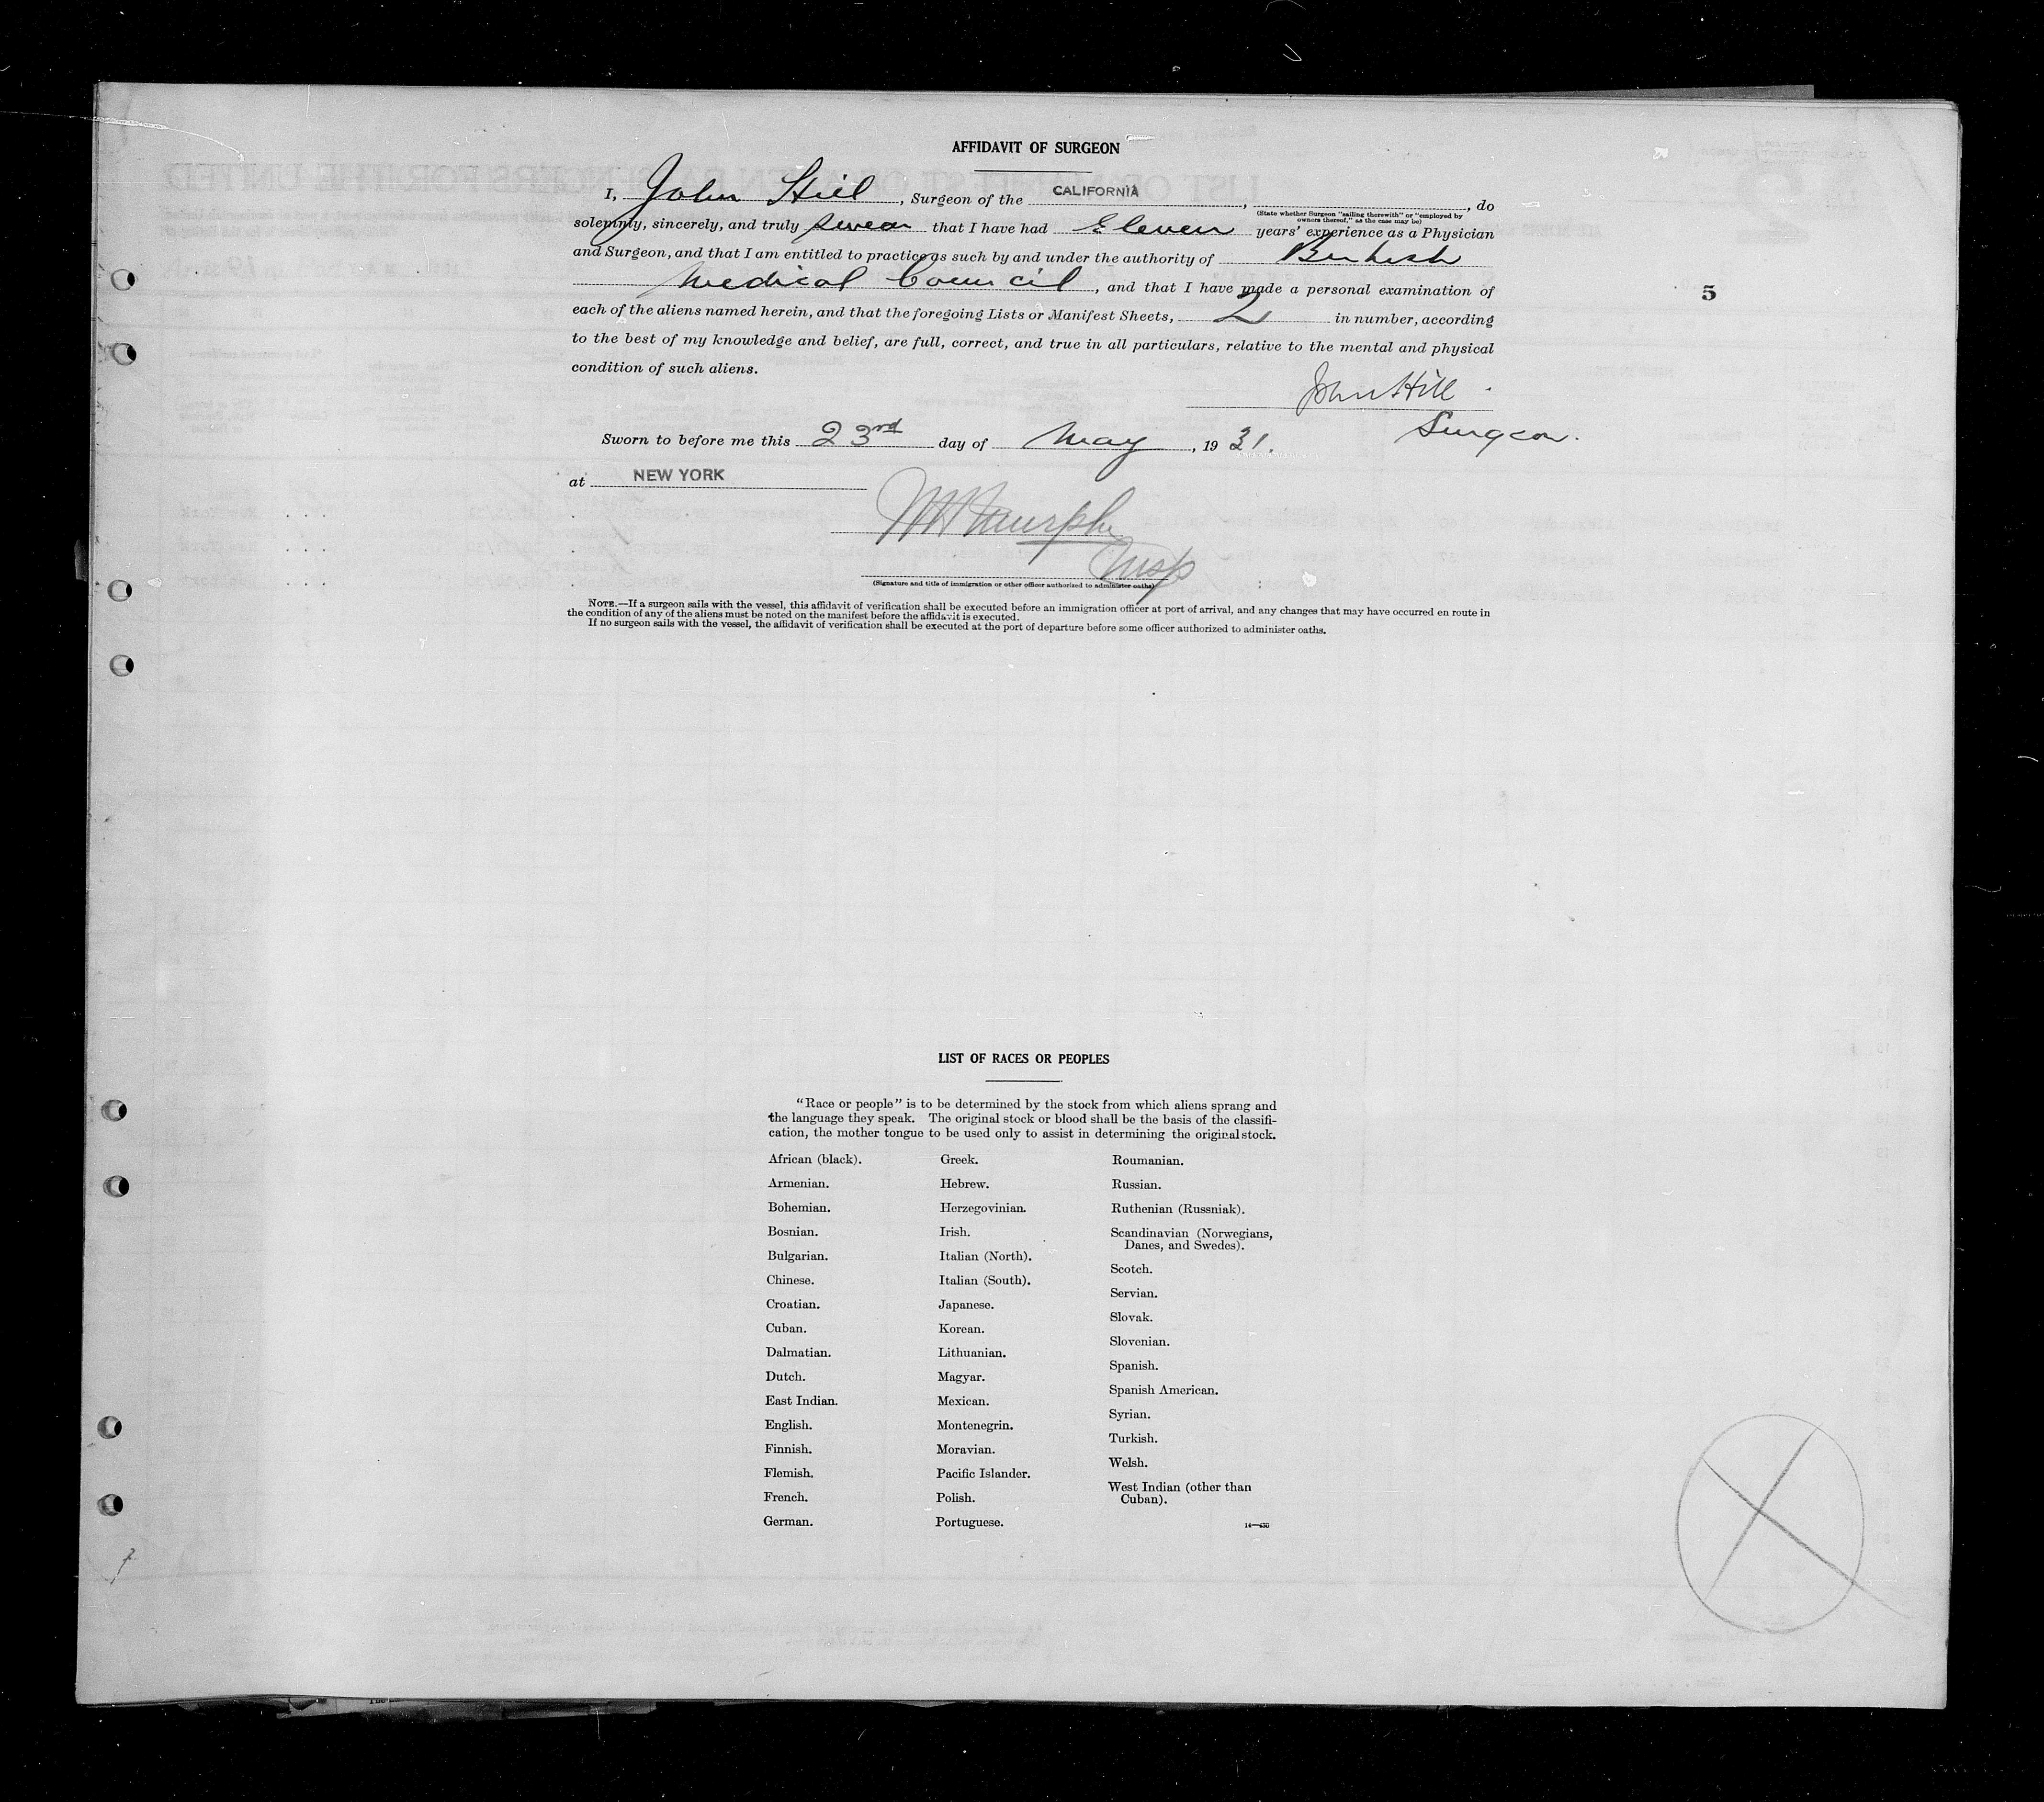 AFFIDAVIT OF SURGEON
I, John Hill, Surgeon of the CALIFORNIA, , do
(State whether Surgeon "sailing therewith" or "employed by owners thereof," as the case may be)
solemnly, sincerely, and truly swear that I have had Eleven years' experience as a Physician
and Surgeon, and that I am entitled to practice as such by and under the authority of British
Medical Council, and that I have made a personal examination of
5
each of the aliens named herein, and that the foregoing Lists or Manifest Sheets, 2 in number, according
to the best of my knowledge and belief, are full, correct, and true in all particulars, relative to the mental and physical
condition of such aliens.
John Hill
Surgeon.
Sworn to before me this 23rd day of May, 1931.
at NEW YORK
Insp
(Signature and title of immigration or other officer authorized to administer oaths)
NOTE.—If a surgeon sails with the vessel, this affidavit of verification shall be executed before an immigration officer at port of arrival, and any changes that may have occurred en route in
the condition of any of the aliens must be noted on the manifest before the affidavit is executed.
If no surgeon sails with the vessel, the affidavit of verification shall be executed at the port of departure before some officer authorized to administer oaths.
LIST OF RACES OR PEOPLES
"Race or people" is to be determined by the stock from which aliens sprang and
the language they speak. The original stock or blood shall be the basis of the classifi-
cation, the mother tongue to be used only to assist in determining the original stock.
African (black).
Armenian.
Bohemian.
Bosnian.
Bulgarian.
Chinese.
Croatian.
Cuban.
Dalmatian.
Dutch.
East Indian.
English.
Finnish.
Flemish.
French.
German.
Greek.
Hebrew.
Herzegovinian.
Irish.
Italian (North).
Italian (South).
Japanese.
Korean.
Lithuanian.
Magyar.
Mexican.
Montenegrin.
Moravian.
Pacific Islander.
Polish.
Portuguese.
Roumanian.
Russian.
Ruthenian (Russniak).
Scandinavian (Norwegians,
Danes, and Swedes).
Scotch.
Servian.
Slovak.
Slovenian.
Spanish.
Spanish American.
Syrian.
Turkish.
Welsh.
West Indian (other than
Cuban).